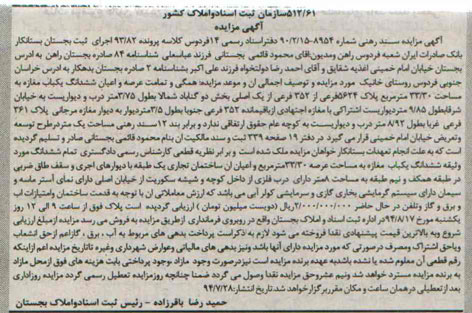 ۵۱۲/۶۱سازمان ثبت اسنادواملاک کشور
آگهی مزایده
آگهی مزایده سند رهنی شماره ۸۹۵۴-۹۰/۲/۱۵دفتراسناد رسمی ۱۴فردوس کلاسه پرونده ۹۳/۸۲ اجرای ثبت بجستان بستانکار
بانک صادرات ایران شعبه فردوس راهن ومدیون:آقای محمود قائمی بجستانی فرزند عباسعلی شناسنامه ۸۴ صادره بجستان راهن به آدرس
بجستان خیابان امام خمینی اغذیه شقایق و آقای احمد رضا دولتخواه فرزند علی اکبر بشناسنامه ۲ صادره بجستان بدهکار به آدرس خراسان
جنوبی فردوس روستای خانیک مورد مزایده و توصیف اجمالی آن و موعد مزایده: همگی و تمامت عرصه و اعیان ششدانگ یکباب مغازه به
مساحت ۳۳/۳۰مترمربع پلاک ۵۶۲۴فرعی از ۲۵۲ فرعی از یک اصلی بخش دو گناباد شمالا بطول ۳/۷۵متر درب و دیواریست به خیابان
شرقابطول ۹/۸۵ متردیواریست اشتراکی با مغازه احداثی اجتهادی ازباقیمانده ۲۵۲ فرعی جنوبا بطول ۳/۵متردیوار به دیوار مغازه مرجانی پلاک ۳۶۱
فرعی غربا بطول ۸/۹۲ متر درب و دیواریست به کوچه عام حقوق ارتفاقی ندارد و برابر بند ۱۲سند رهنی مساحت یک مترطرح توسعه
وتعریض خیابان امام خمینی کسر می گردد در دفتر ۱۹ صفحه ۳۳۹ ثبت وسند مالکیت آن بنام محمود قائمی بجستانی صادر و تسلیم گردیده
است که به علت انجام تعهدات بستانکار خواهان مزایده ملک شده است و برابر نظریه قطعی کارشناس رسمی دادگستری تمام ششدانگ مورد
وثیقه ششدانگ یکباب مغازه به مساحت عرصه ۳۳/۳۰مترمربع و اعیان آن ساختمان تجاری یک طبقه با دیوارهای آجری و سقف طاق ضربی
در طبقه همکف و نیم طبقه به مساحت ۸متر دارای درب فلزی از داخل کوچه و شیشه سکوریت از خیابان اصلی دارای نمای آستر ماسه و
سیمان دارای سیستم گرمایشی بخاری گازی و سرمایشی کولر آبی می باشد که ارزش معاملاتی آن با توجه به قدمت ساختمان وامتیازات آب
و برق و گاز در حال حاضر ۲/۰۰۰/۰۰۰/۰۰۰ریال(دویست میلیون تومان ) ارزیابی گردیده است و پلاک فوق از ساعت ۹ الی ۱۲ روز
یکشنبه مورخ ۹۴/۸/۱۷در اداره ثبت اسناد و املاک بجستان واقع در روبروی فرمانداری ازطریق مزایده به فروش می رسد مزایده ازمبلغ ارزیابی
شروع وبه بالاترین قیمت پیشنهادی نقدا فروخته می شود لازم به ذکراست پرداخت بدهی های مربوط به آب ، برق ، گازاعم ازحق انشعاب
ویاحق اشتراک ومصرف درصورتی که مورد مزایده دارای آنها باشد ونیز بدهی های مالیاتی وعوارض شهرداری وغیره تاتاریخ مزایده اعم ازاینکه
رقم قطعی آن معلوم یا نشده باشد به عهده برنده مزایده است نیزدرصورت وجود مازاد وجوه پرداختی بابت هزینه های فوق ازمحل مازاد
به برنده مزایده مسترد خواهد شد ونیم عشروحق مزایده نقدا وصول می گردد ضمنا چنانچه روزمزایده تعطیل رسمی گردد مزایده روزاداری
بعد ازتعطیلی درهمان ساعت و مکان مقرر برگزارخواهد شد.تاریخ انتشار:۹۴/۷/۲۸
حمید رضا باقرزاده – رئیس ثبت اسنادواملاک بجستان